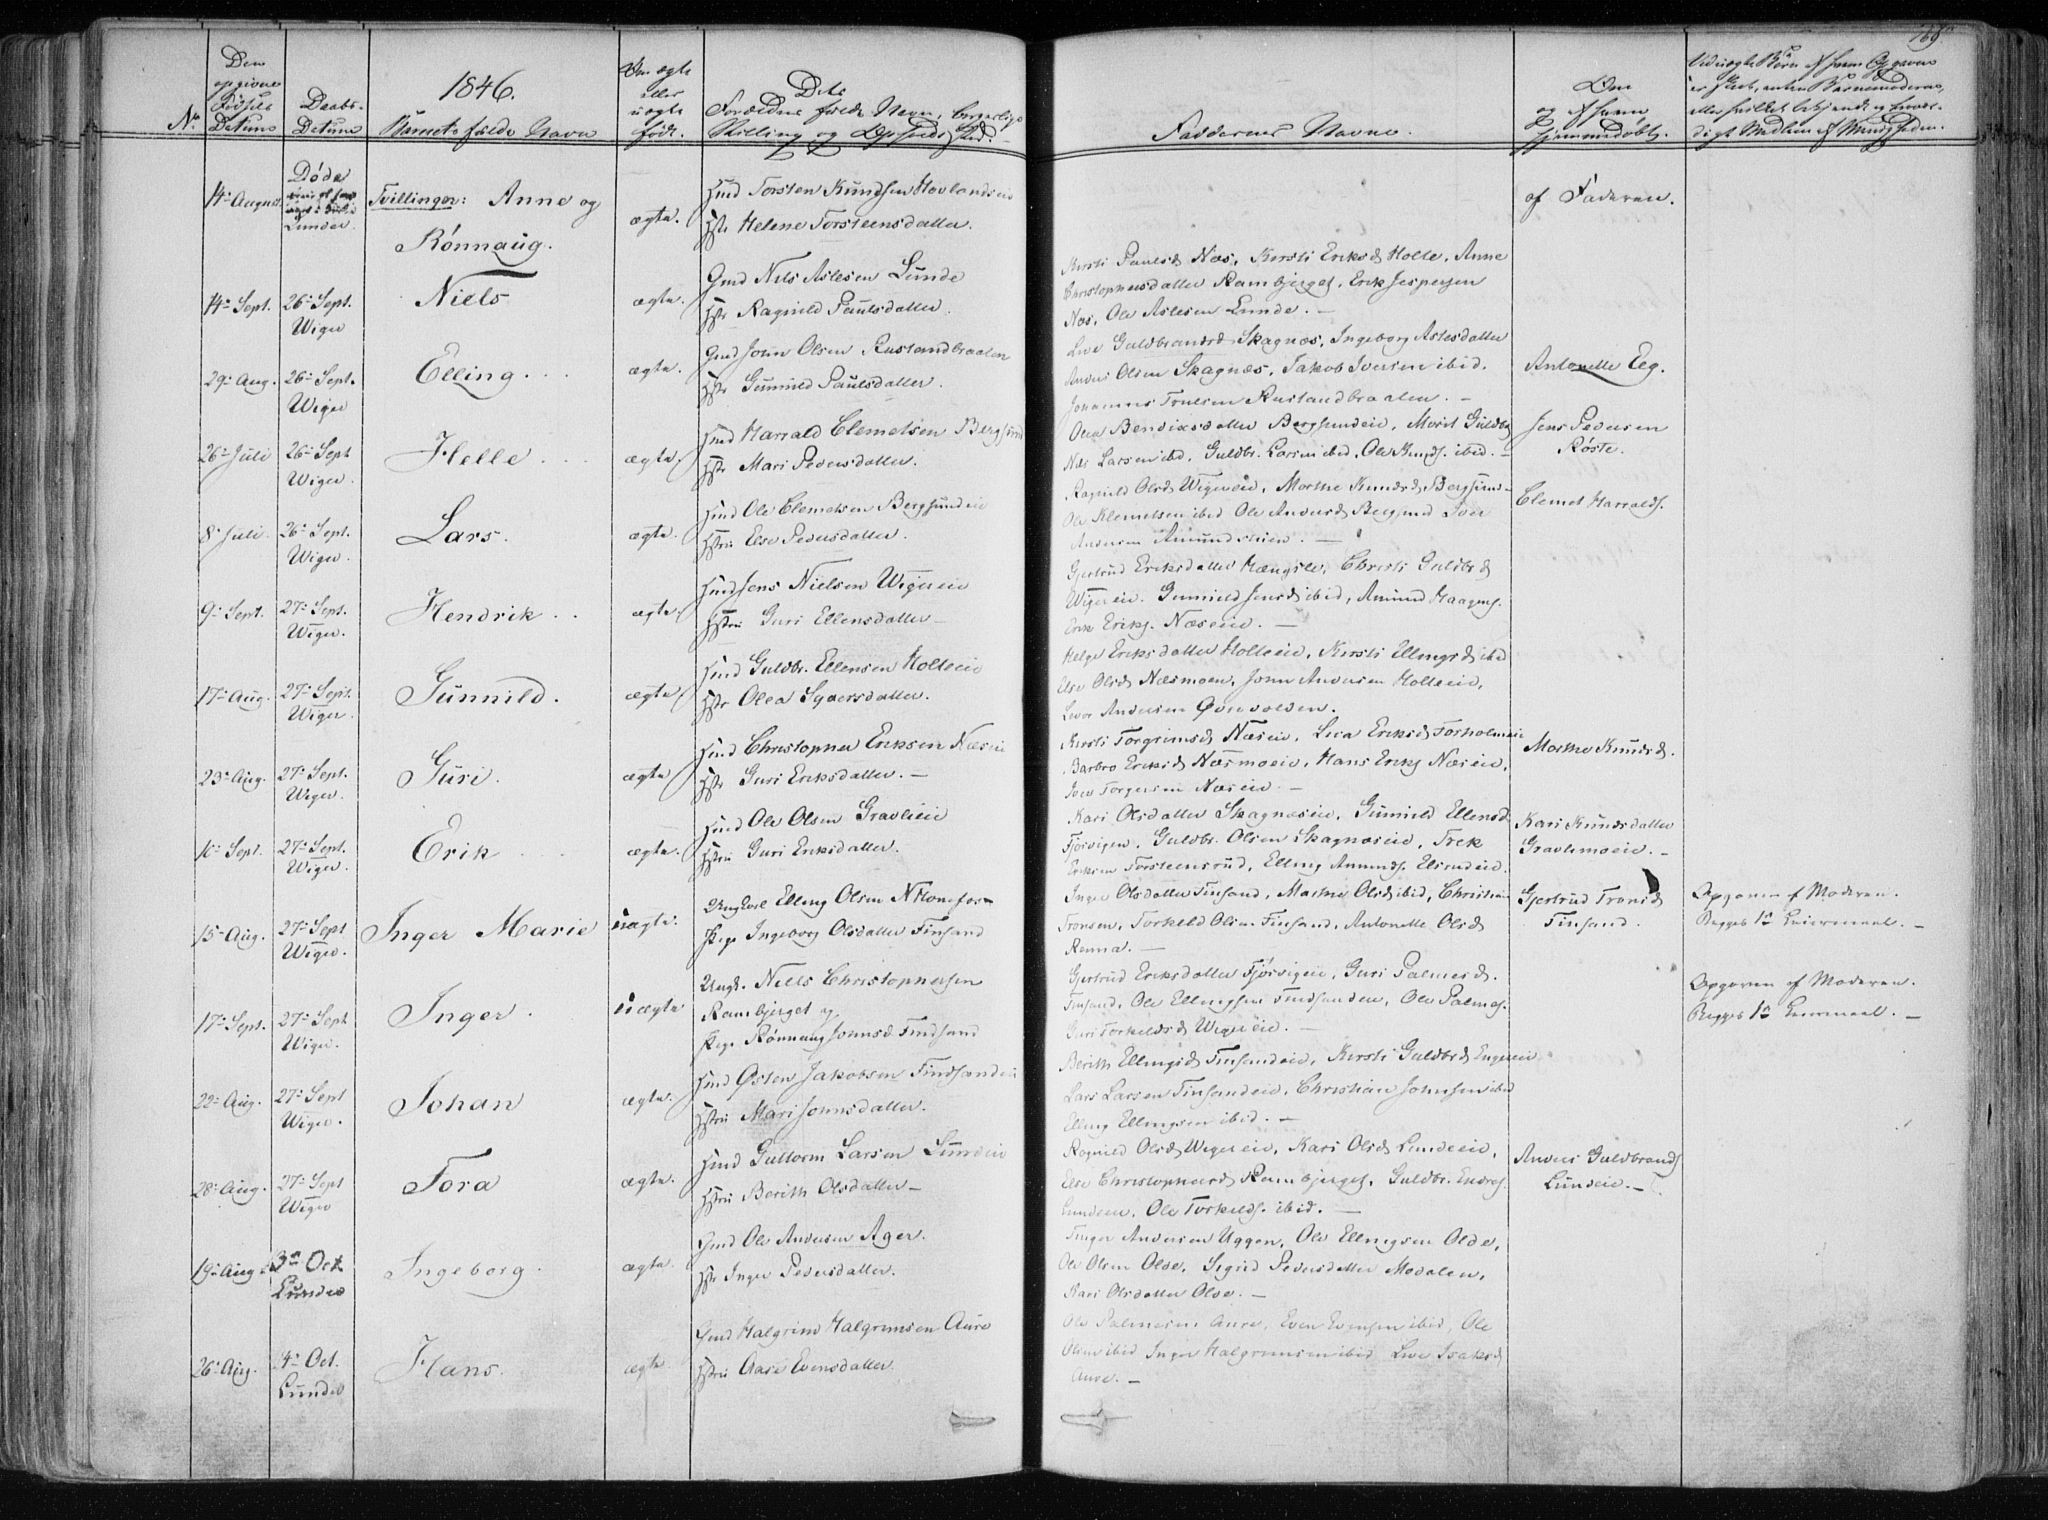 168.
1846.
Den opgivne Fødsels Datum
Daabs-Datum
Barnets fulde Navn
Om ægte eller uægte født.
Forældres fulde Navn, borgerlige Stilling og Opholds Sted.
Faddernes Navne.
Om og af hvem hjemmedøbt.
14de August. Døde Lunder. Tvillinger: Anne og Rønnaug. ægte. Torsten Knudsen Hovlandseie
Helene Torsteensdatter. af Faderen.
14de Sept. 26de Sept. Wiger Niels ægte. Gmd Nels Aslesen Lunde
Hstr Ragnild Paulsdatter.
Kersti Paulsd Næs, Kersti Eriksd Holte, Anne
Christophersdatter Rambjerget, Erik Jespersen
Næs, Ole Aslesen Lunde. —
29de Aug. 26de Sept. Wiger Elling. ægte. Gmd John Olsen Rustandbraaten
Hstr Gunnild Paulsdatter.
Live Guldbrandsd Skagnæs, Ingeborg Aslesdatter
Anders Olsen Skagnæs, Jakob Iversen ibid.
Johannes Trulsen Rustandbraaten. —
Antonette Eeg.
26de Juli 26de Sept Wiger. Helle ægte. Hmd Harrald Clemetsen Bergsund
Hstr Mari Pedersdatter.
Olea Bendixsdatter Bergsundeie, Marit Guldb
Nils Larsen ibid, Guldbr. Larsen ibid, Ole Knuds. ibid. —
Jens Pedersen
Røste.
8de Juli. 26de Sept. Wiger. Lars. ægte. Hmd Ole Clemetsen Bergsundeie
Hstru Else Pedersdatter.
Ragnild Olsd Wigereie, Marthe Knudsd Bergsund
Ole Klemetsen ibid Ole Andersd Bergsund Iver
Andersen Amundshien. —
Clemet Harralds.
9de Sept. 27de Sept. Wiger. Hendrik ægte. Hmd Jens Nielsen Wigereie
Hstru Guri Ellensdatter —
Gjertrud Eriksdatter Hængsle, Christi Guldbr d
Wigereie. Gunnild Jensd ibid, Amund Haagens.
Erik Eriks. Næseie. —
17de Aug. 27de Sept. Wiger. Gunnild. ægte. Hmd Guldbr. Ellensen Holteeie
Hstr Olea Syversdatter.
Helge Eriksdatter Holteeie, Kersti Ellingsd ibid
Else Olsd Næsmoen, John Andersen Holteeie,
Lever Andersen Øvrevolden.
23de Aug. 27de Sept. Wiger. Guri. ægte. Hmd Christopher Eriksen Næseie
Hstr Guri Eriksdatter. —
Kersti Torgrimsd Næseie, Liva Eriksd Torholmeie
Barbro Eriksd Næsmoeie, Hans Eriks Næseie,
Iver Torgersen Næseie. —
Marthe Knudsd.
10de Sept. 27de Sept. Wiger. Erik ægte. Hmd Ole Olsen Gravlieie
Hstru Guri Eriksdatter.
Kari Olsdatter Skagnæseie, Gunnild Ellensd
Fjøsvigen, Guldbr. Olsen Skagnæseie, Erek
Eriksen Torsteensrud, Elling Amunds. Elsrudeie.
Kari Knudsdatter
Gravlimoeie. —
15de Aug. 27de Sept Wiger. Inger Marie uægte. Ungkarl Elling Olsen N Hønefos
Pige Ingeborg Olsdatter Finsand
Inger Olsdatter Finsand, Marthe Olsd ibid, Christian
Tronsen, Torkeld Olsen Finsand, Antonette Olsd
Renna. —
Gjertrud Tronsd
Finsand.
Opgiven af Moderen.
Begges 1ste Leiermaal. —
17de Sept. 27de Sept Wiger. Inger. uægte Ungk. Niels Christophersen
Rambjerget og
Pige Rønnaug Jonnsd Findsand
Gjertrud Eriksdatter Fjøsvigeie, Guri Palmesd.
Finsand, Ole Ellingsen Findsanden, Ole Palmes.
Guri Torkeldsd Wigereie. —
Opgiven af Moderen.
Begges 1ste Leiermaal. —
22de Aug. 27de Sept Wiger. Johan ægte. Hmd Østen Jakobsen Findsandeie
Hstru Mari Jonnsdatter.
Berith Ellingsd Finsandeie, Kersti Guldbrd Engeeie
Lars Larsen Finsandeie, Christian Johnsen ibid
Elling Ellingsen ibid. —
28de Aug. 27de Sept Wiger Tora ægte. Hmd Guttorm Larsen Lundeie
Hstru Berith Olsdatter —
Ragnild Olsd Wigereie, Kari Olsd Lundeeie,
Else Christophersd Rambjerget, Guldbr. Endres.
Lundeeie, Ole Torkelds. ibid. —
Anders Guldbrands
Lundeie. —
19de Aug 3de Oct. Lunder Ingeborg. ægte. Gmd Ole Andersen Ager.
Hstr Inger Pedersdatter.
Tinger Andersen Uggen, Ole Ellingsen Olde,
Ole Olsen Olde, Sigrid Pedersdatter Modalen,
Kari Olsdatter Olde. —
26de Aug. 4de Oct. Lunder Hans. ægte. Gmd Halgrim Halgrimsen Aure
Hstru Aase Evensdatter.
Ole Palmesen Aure, Even Evensen ibid, Ole
Olsen ibid Inger Halgrimsen ibid Live Isaksd
Aure. —